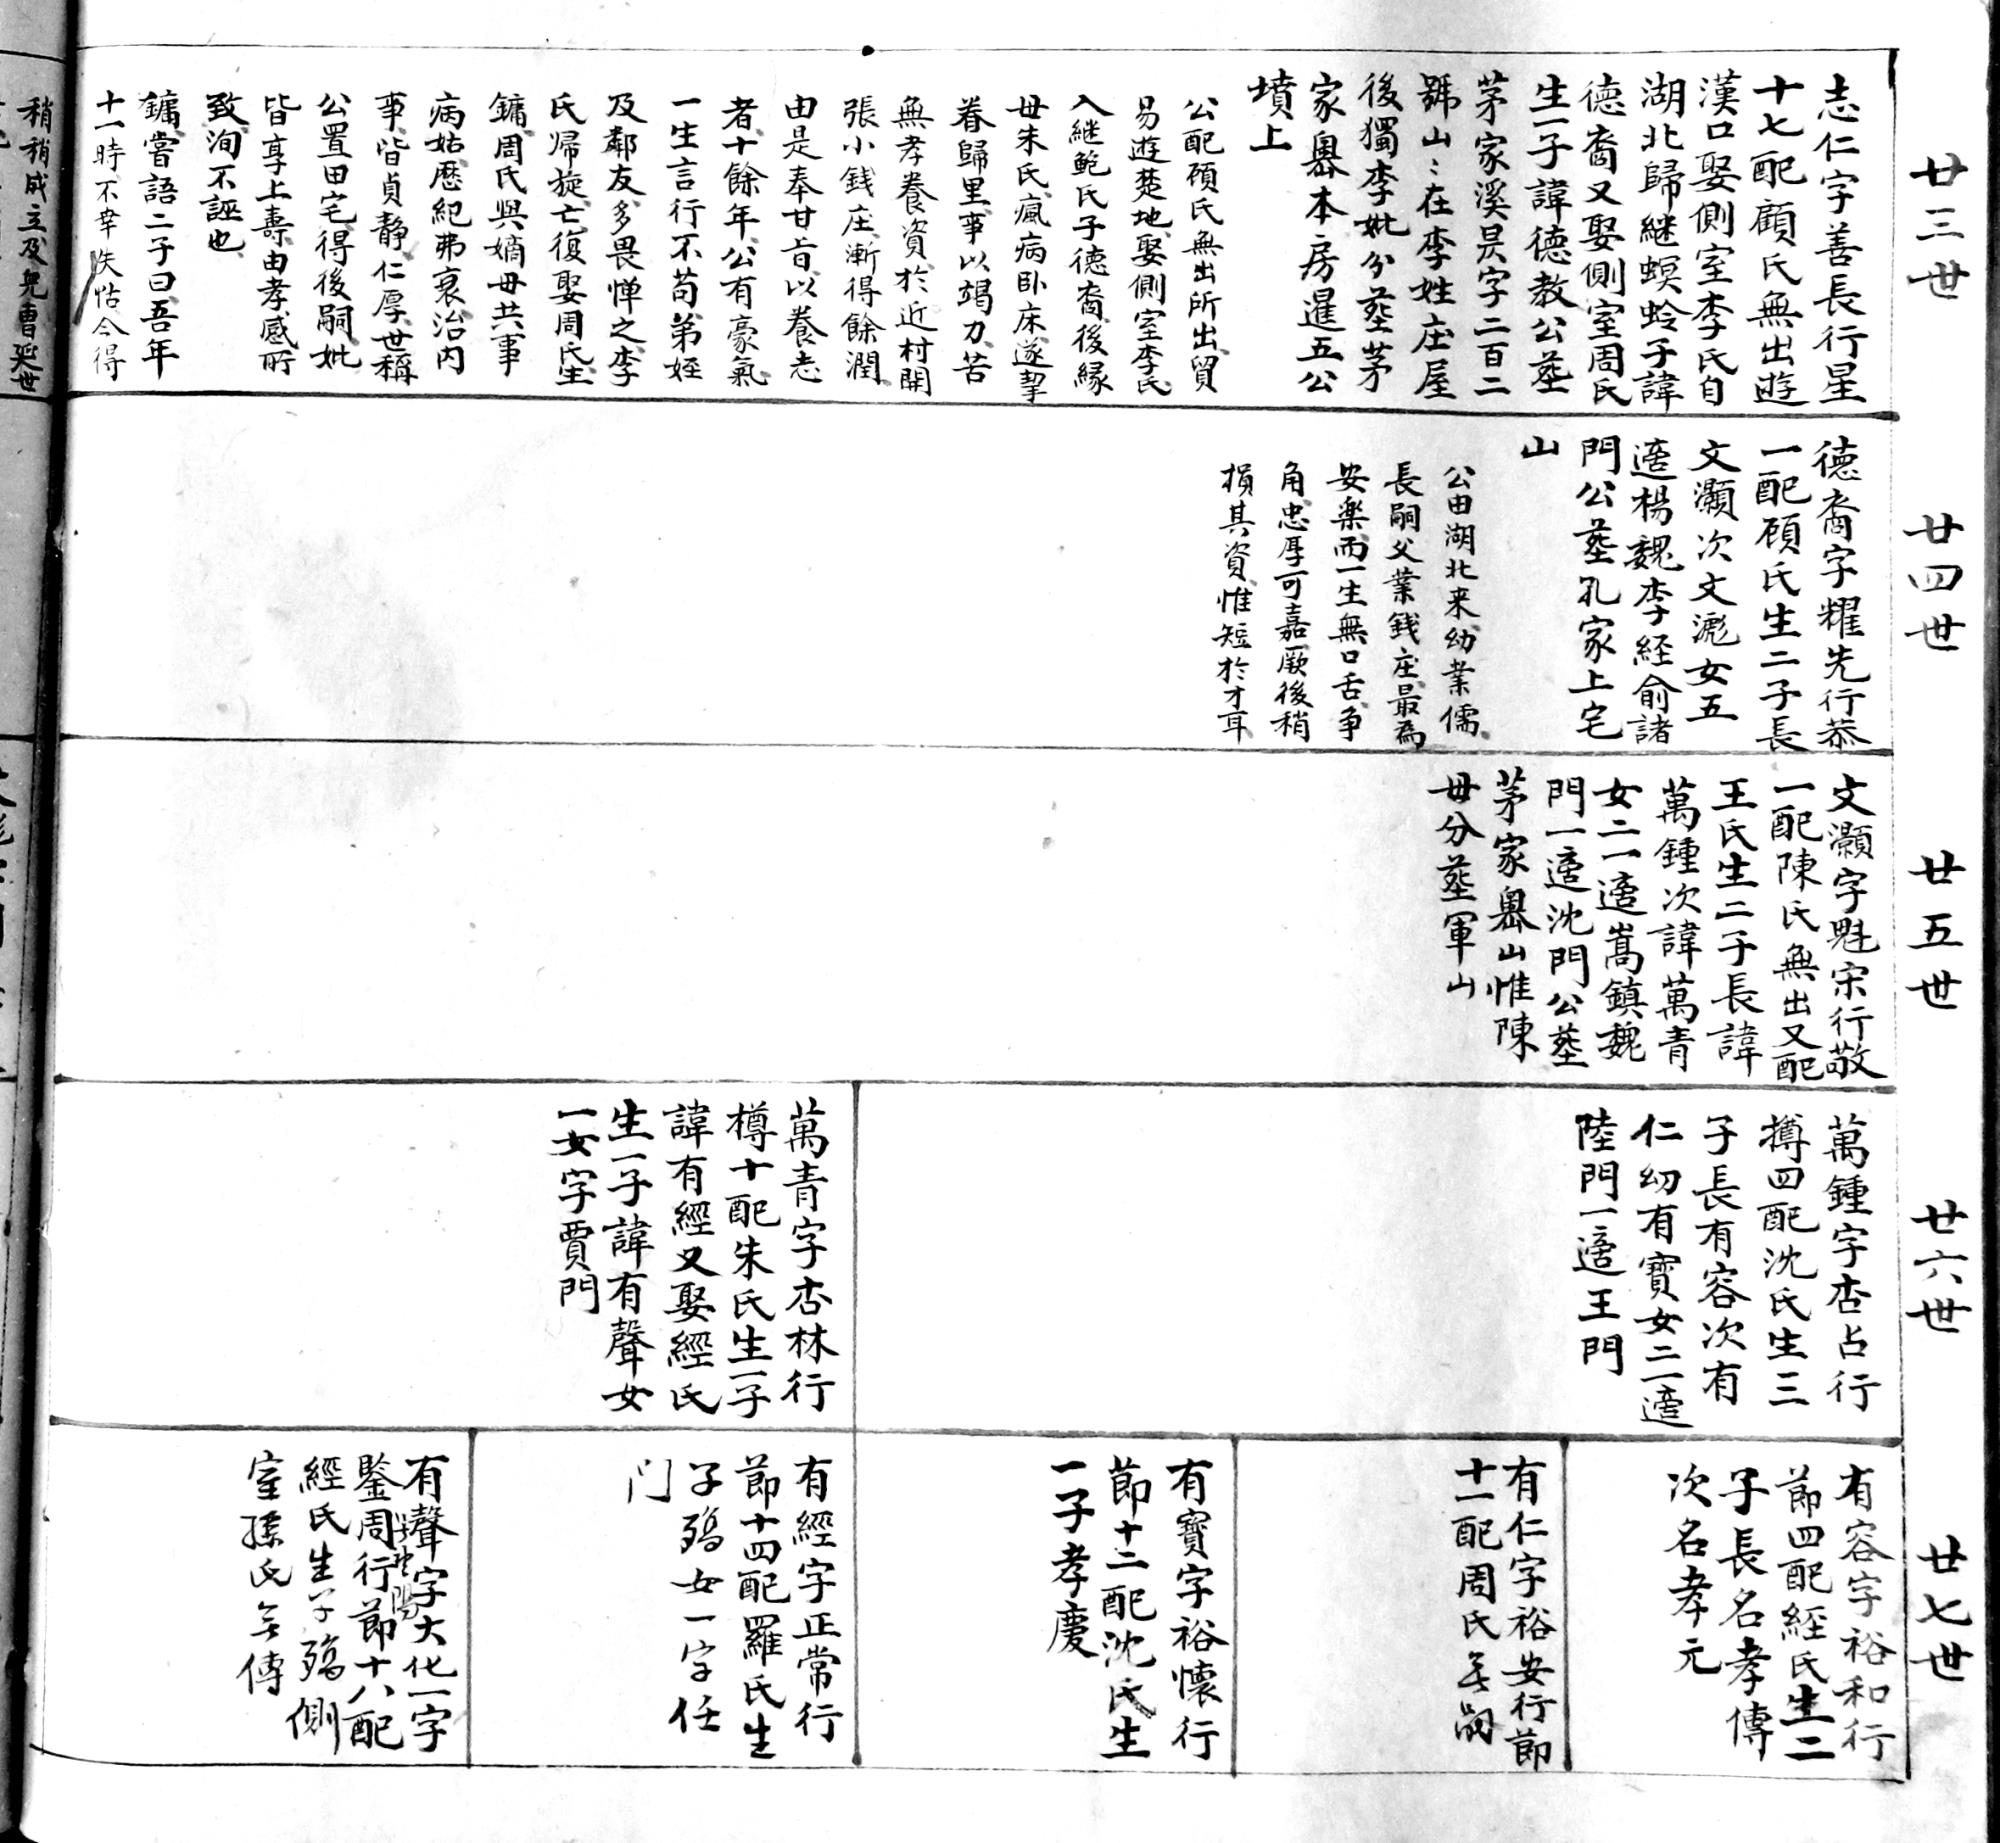 廿三世
志仁字善長行星
十七配顧氏無出遊
漢口娶側室李氏自
湖北歸継螟蛉子諱
德裔又娶側室周氏
生一子諱德教公塟
茅家溪昃字二百二
號山〻在李姓庄屋
後獨李妣分塟茅
家嶴本房暹五公
墳上
公配顧氏無出所出貿
易遊楚地娶側室李氏
入継鮑氏子德裔後緣
母朱氏瘋病臥床遂挈
眷歸里事以竭力苦
無孝養資於近村開
張小錢庄漸得餘潤
由是奉甘旨以養志
者十餘年公有豪氣
一生言行不苟弟姪
及鄰友多畏憚之李
氏帰旋亡復娶周氏生
鏞周氏與嫡母共事
病姑歷紀弗衰治内
事皆貞靜仁厚世稱
公置田宅得後嗣妣
皆享上壽由孝感所
致洵不誣也
鏞嘗語二子曰吾年
十一時不幸失怙今得
稍稍成立及見曹延世
廿四世
德裔字耀先行恭
一配顧氏生二子長
文灝次文滮女五
適楊魏李経俞諸
門公塟孔家上宅
山
公由湖北来幼業儒
長嗣父業錢庄最為
安樂而一生無口舌爭
角忠厚可嘉厥後稍
損其資惟短於才耳
廿五世
文灝字魁宗行敬
一配陳氏無出又配
王氏生二子長諱
萬鍾次諱萬青
女二一適嵩鎮魏
門一適沈門公塟
茅家嶴山惟陳
母分塟軍山
廿六世
萬鍾字杏占行
摶四配沈氏生三
子長有容次有
仁幼有寳女二一適
陸門一適王門
萬青字杏林行
樽十配朱氏生一子
諱有經又娶經氏
生一子諱有聲女
一女字賈門
廿七世
有容字裕和行
節四配経氏生二
子長名孝傳
次名孝元
有仁字裕安行節
十一配周氏无嗣
有寳字裕懷行
節十二配沈氏生
一子孝慶
有經字正常行
節十四配羅氏生
子殤女一字任
门
有聲字大化一字
鑒周行節十八配
經氏生一子殤側
室孫氏无傳